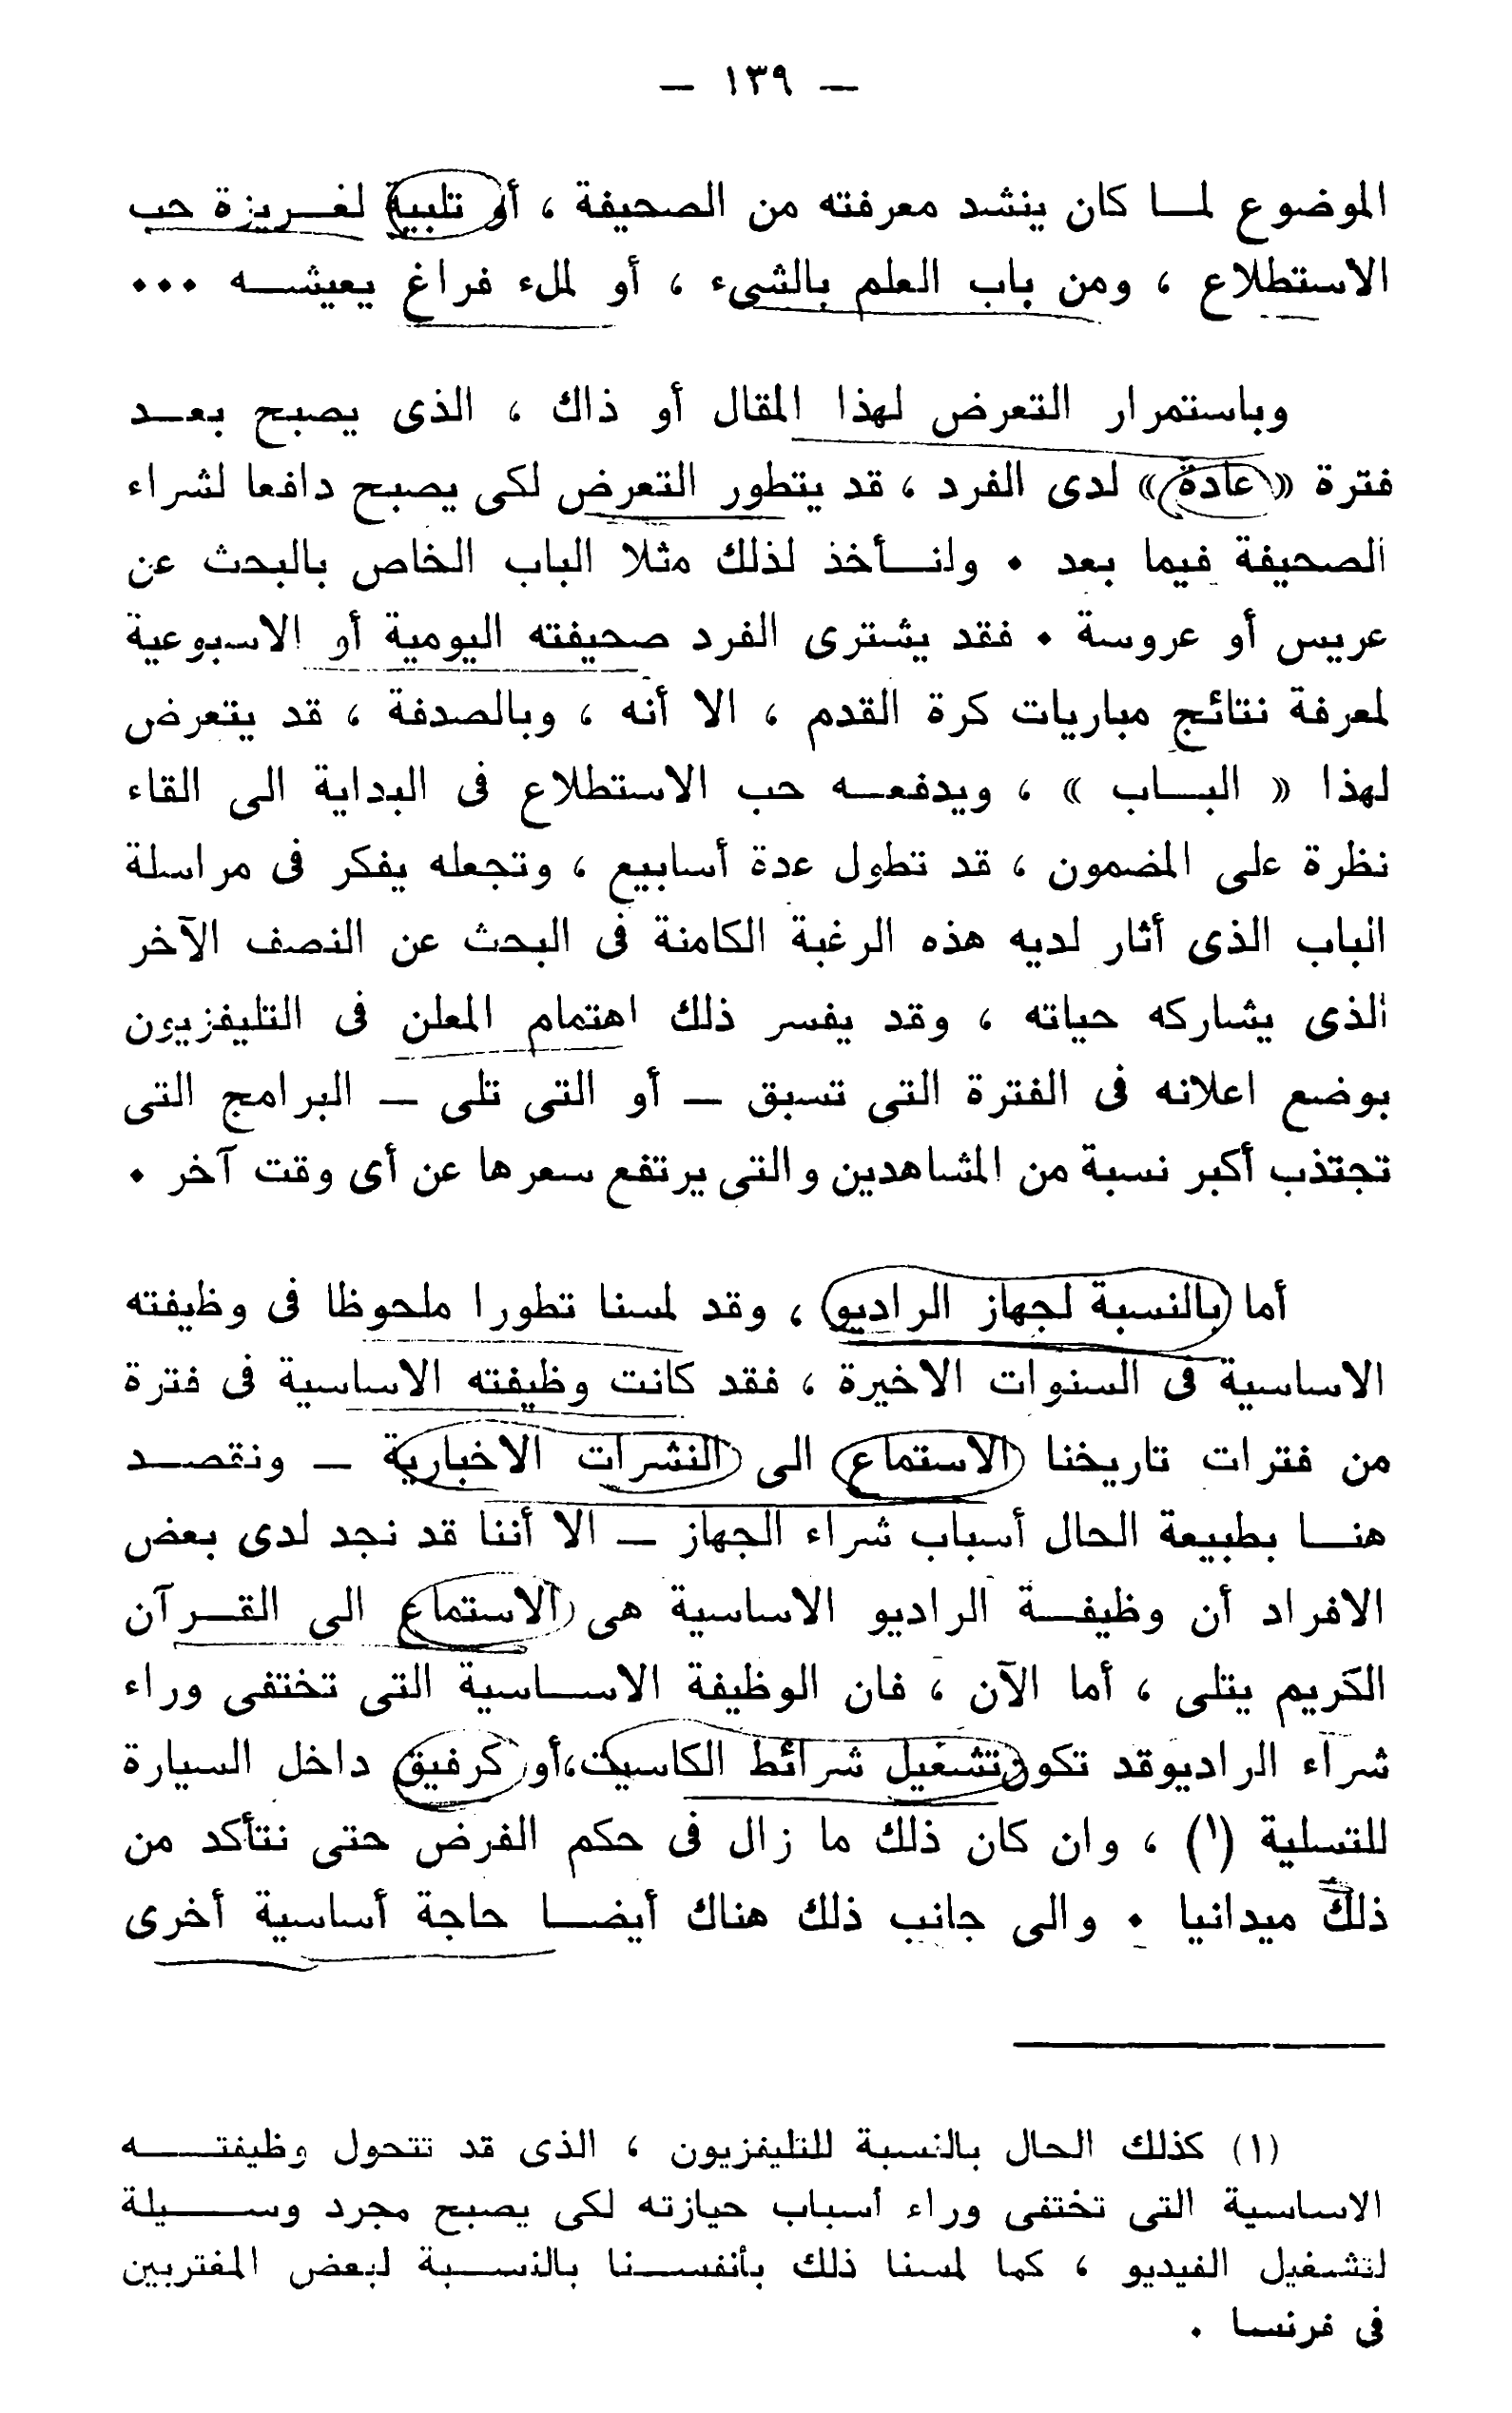 — ١٣٩ —
الموضوع لما كان ينشد معرفته من الصحيفة ، أو تلبية لغريزة حب
الاستطلاع ، ومن باب العلم بالشىء ، أو لملء فراغ يعيشه ٠٠٠
وباستمرار التعرض لهذا المقال أو ذاك ، الذى يصبح بعد
فترة « عادة » لدى الفرد ، قد يتطور التعرض لكى يصبح دافعا لشراء
الصحيفة فيما بعد ٠ ولنأخذ لذلك مثلا الباب الخاص بالبحث عن
عريس أو عروسة ٠ فقد يشترى الفرد صحيفته اليومية أو الاسبوعية
لمعرفة نتائج مباريات كرة القدم ، الا أنه ، وبالصدفة ، قد يتعرض
لهذا « الباب » ، ويدفعه حب الاستطلاع فى البداية الى القاء
نظرة على المضمون ، قد تطول عدة أسابيع ، وتجعله يفكر فى مراسلة
الباب الذى أثار لديه هذه الرغبة الكامنة فى البحث عن النصف الآخر
الذى يشاركه حياته ، وقد يفسر ذلك اهتمام المعلن فى التليفزيون
بوضع اعلانه فى الفترة التى تسبق — أو التى تلى — البرامج التى
تجتذب أكبر نسبة من المشاهدين والتى يرتفع سعرها عن أى وقت آخر ٠
أما بالنسبة لجهاز الراديو ، وقد لمسنا تطورا ملحوظا فى وظيفته
الاساسية فى السنوات الاخيرة ، فقد كانت وظيفته الاساسية فى فترة
من فترات تاريخنا الاستماع الى النشرات الاخبارية — ونقصد
هنا بطبيعة الحال أسباب شراء الجهاز — الا أننا قد نجد لدى بعض
الافراد أن وظيفة الراديو الاساسية هى الاستماع الى القرآن
الكريم يتلى ، أما الآن ، فان الوظيفة الاساسية التى تختفى وراء
شراء الراديو قد تكون تشغيل شرائط الكاسيت، أو كرفيق داخل السيارة
للتسلية (١) ، وان كان ذلك ما زال فى حكم الفرض حتى نتأكد من
ذلك ميدانيا ٠ والى جانب ذلك هناك أيضا حاجة أساسية أخرى
(١) كذلك الحال بالنسبة للتليفزيون ، الذى قد تتحول وظيفته
الاساسية التى تختفى وراء أسباب حيازته لكى يصبح مجرد وسيلة
لتشغيل الفيديو ، كما لمسنا ذلك بأنفسنا بالنسبة لبعض المغتربين
فى فرنسا ٠